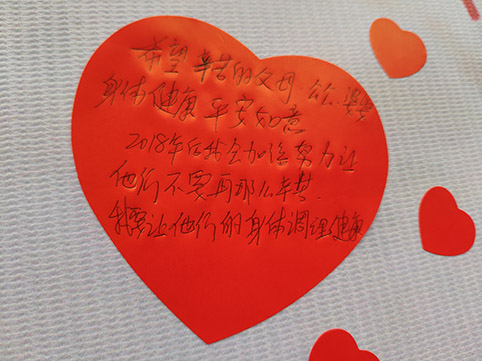 希望辛苦的父母.公公.婆婆
身体健康 平安如意
2018年后我会加倍努力让
他们不要再那么辛苦.
我要让他们的身体调理健康